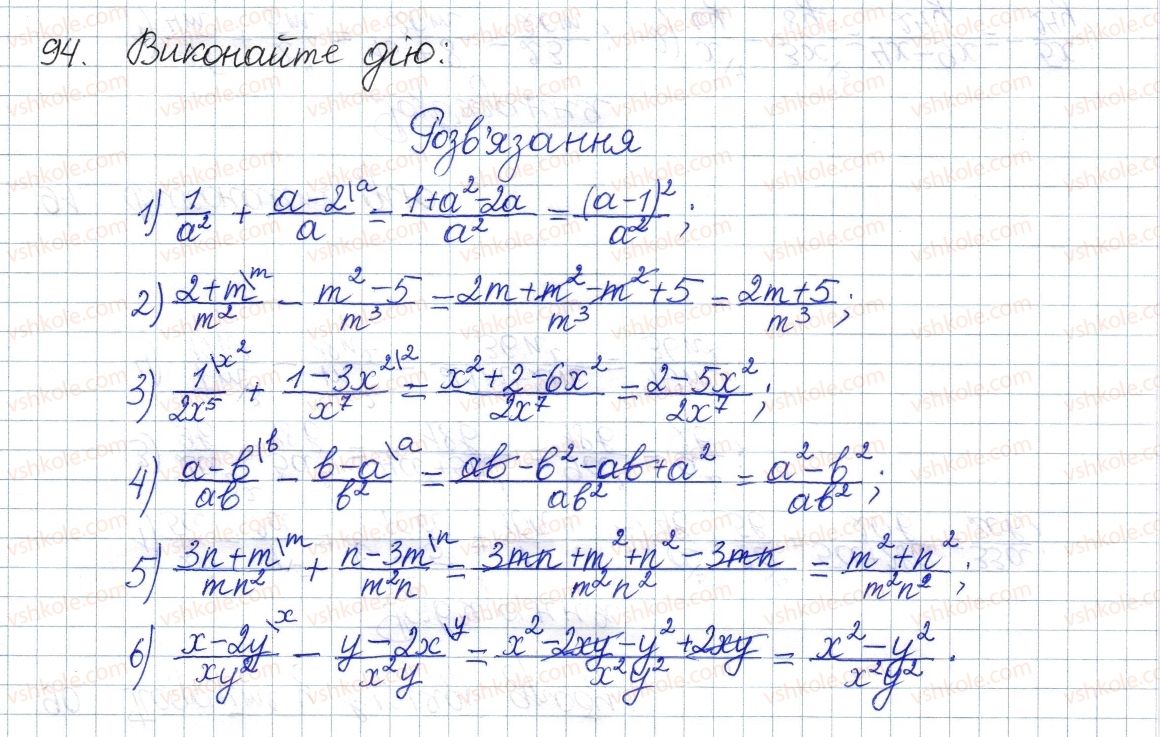 94. Виконайте дію:
Розв'язання
1) 1/a² + (a-2)/a \a = (1+a²-2a)/a² = (a-1)²/a²;
2) (2+m)/m² \m - (m²-5)/m³ = (2m+m²-m²+5)/m³ = (2m+5)/m³;
3) 1/(2x⁵) \x² + (1-3x²)/x⁷ \2 = (x²+2-6x²)/(2x⁷) = (2-5x²)/(2x⁷);
4) (a-b)/(ab) \b - (b-a)/b² \a = (ab-b²-ab+a²)/(ab²) = (a²-b²)/(ab²);
5) (3n+m)/(mn²) \m + (n-3m)/(m²n) \n = (3mn+m²+n²-3mn)/(m²n²) = (m²+n²)/(m²n²);
6) (x-2y)/(xy²) \x - (y-2x)/(x²y) \y = (x²-2xy-y²+2xy)/(x²y²) = (x²-y²)/(x²y²).
vshkole.com